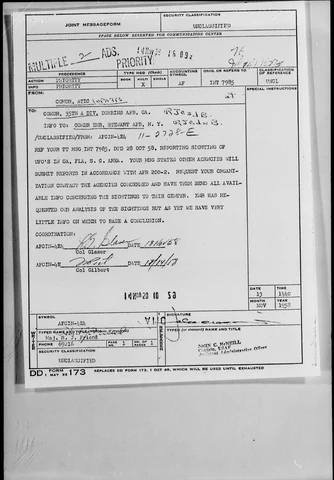 JOINT MESSAGEFORM
SECURITY CLASSIFICATION
UNCLASSIFIED
SPACE BELOW RESERVED FOR COMMUNICATION CENTER
MULTIPLE 2 ADS.
PRIORITY
PRECEDENCE
TYPE MSG (Check)
ACCOUNTING SYMBOL
ORIG. OR REFERS TO
CLASSIFICATION OF REFERENCE
ACTION PRIORITY
BOOK
MULTI
SINGLE
INFO PRIORITY
X
AF
INT 7985
UNCL
FROM:
SPECIAL INSTRUCTIONS
COMDR, ATIC
TO: COMDR, 35TH A DIV, DOBBINS AFB, GA.
INFO TO: COMDR EDR, STEWART AFB, N. Y.
/UNCLASSIFIED/FROM: AFCIN-4E4 11-0728-E
REF YOUR TT MSG INT 7985, DTD 28 OCT 58, REPORTING SIGHTING OF
UFO'S IN GA, FLA, S. C. AREA. YOUR MSG STATES OTHER AGENCIES WILL
SUBMIT REPORTS IN ACCORDANCE WITH AFR 200-2. REQUEST YOUR ORGANI-
ZATION CONTACT THE AGENCIES CONCERNED AND HAVE THEM SEND ALL AVAIL-
ABLE INFO CONCERNING THE SIGHTINGS TO THIS CENTER. EDR HAS RE-
QUESTED OUR ANALYSIS OF THE SIGHTINGS BUT AS YET WE HAVE VERY
LITTLE INFO ON WHICH TO BASE A CONCLUSION.
COORDINATION:
AFCIN-4E4 DATE
Col Glaser
AFCIN-4E DATE
Col Gilbert
14 NOV 20 10 58
DATE
13
TIME
1440
MONTH
NOV
YEAR
1958
SYMBOL
AFCIN-4E4
SIGNATURE
TYPED NAME AND TITLE
Maj. R. J. Byland
PHONE
69216
PAGE NR.
1
NR. OF PAGES
1
TYPED (or stamped) NAME AND TITLE
JOHN C. McNEILL
Captain, USAF
Assistant Administrative Officer
SECURITY CLASSIFICATION
UNCLASSIFIED
DD FORM 173 REPLACES DD FORM 173, 1 OCT 49, WHICH WILL BE USED UNTIL EXHAUSTED